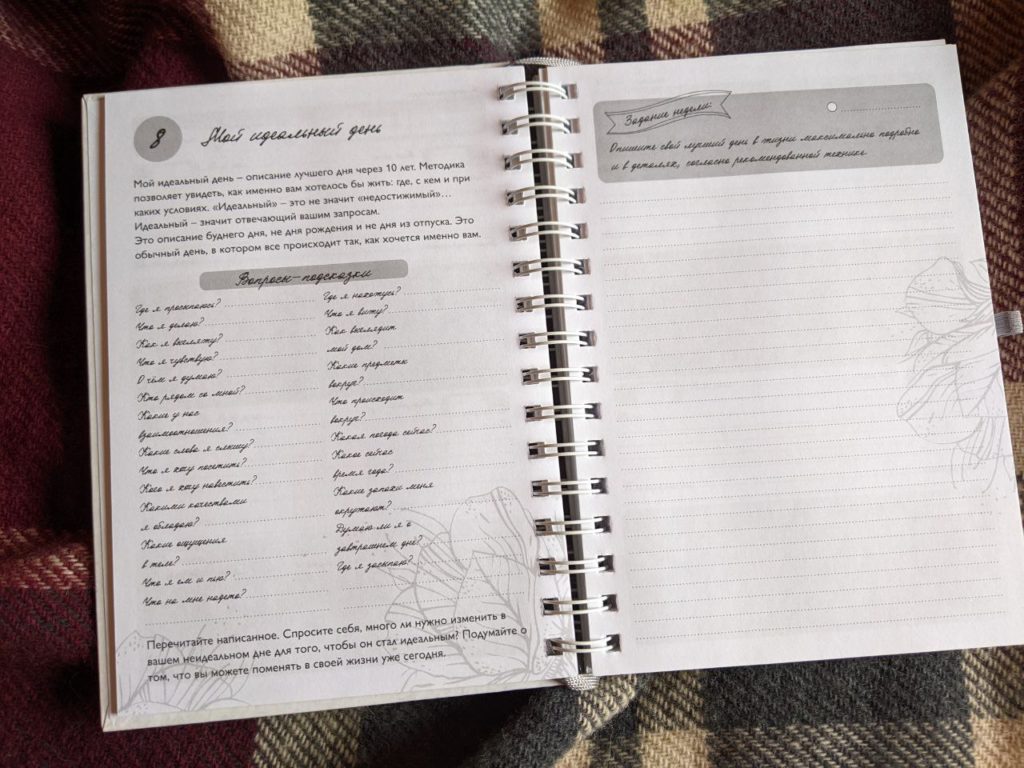 8
Мой идеальный день
Мой идеальный день – описание лучшего дня через 10 лет. Методика
позволяет увидеть, как именно вам хотелось бы жить: где, с кем и при
каких условиях. «Идеальный» – это не значит «недостижимый»...
Идеальный – значит отвечающий вашим запросам.
Это описание буднего дня, не дня рождения и не дня из отпуска. Это
обычный день, в котором все происходит так, как хочется именно вам.
Вопросы-подсказки
Где я просыпаюсь?
Что я делаю?
Как я выгляжу?
Что я чувствую?
О чём я думаю?
Кто рядом со мной?
Какие у нас
взаимоотношения?
Какие слова я слышу?
Что я хочу посетить?
Кого я хочу навестить?
Какими качествами
я обладаю?
Какие ощущения
в теле?
Что я ем и пью?
Что на мне надето?
Где я нахожусь?
Что я вижу?
Как выглядит
мой дом?
Какие предметы
вокруг?
Что происходит
вокруг?
Какая погода сейчас?
Какое сейчас
время года?
Какие запахи меня
окружают?
Думаю ли я о
завтрашнем дне?
Где я засыпаю?
Перечитайте написанное. Спросите себя, много ли нужно изменить в
вашем неидеальном дне для того, чтобы он стал идеальным? Подумайте о
том, что вы можете поменять в своей жизни уже сегодня.
Задание недели:
Опишите свой лучший день в жизни максимально подробно
и в деталях, согласно рекомендованной технике.